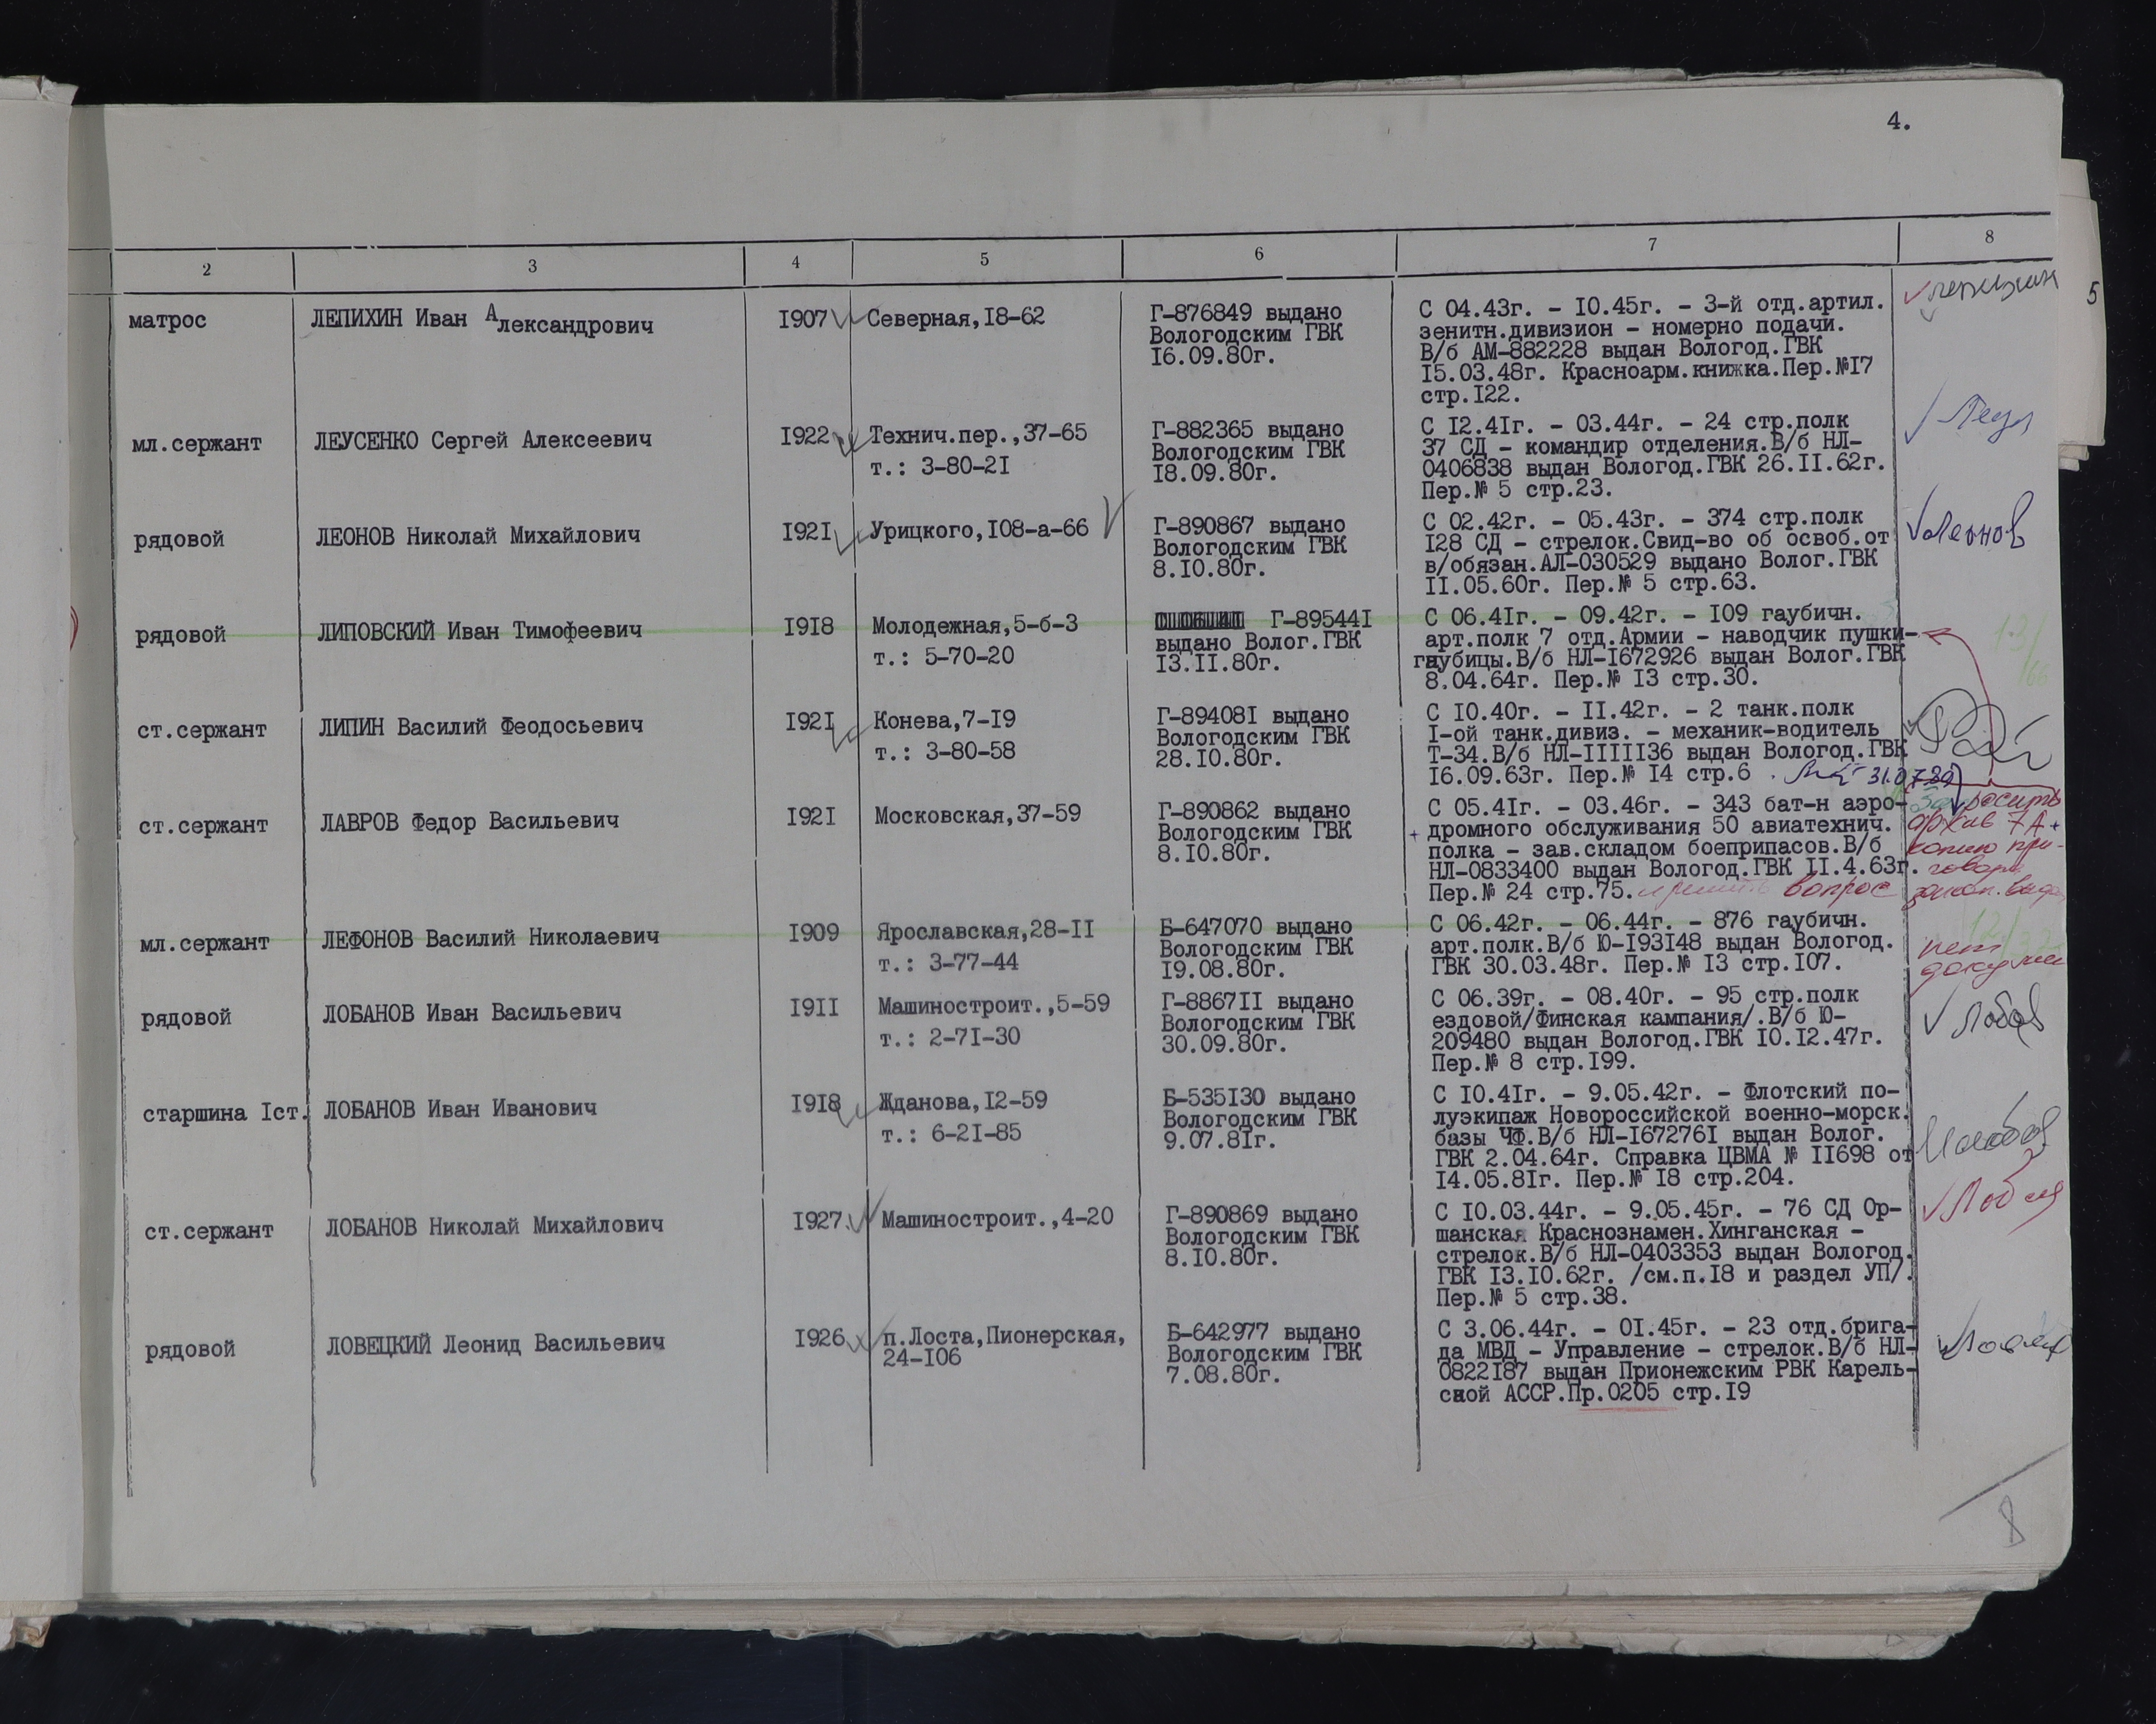 4.
2 3 4 5 6 7 8
5
матрос ЛЕПИХИН Иван Александрович I907 Северная,I8-62 Г-876849 выдано С 04.43г. - I0.45г. - 3-й отд.артил.
Вологодским ГВК зенитн.дивизион - номерно подачи.
I6.09.80г. В/б АМ-882228 выдан Вологод.ГВК
I5.03.48г. Красноарм.книжка.Пер.№I7
стр.I22.
мл.сержант ЛЕУСЕНКО Сергей Алексеевич I922 Технич.пер.,37-65 Г-882365 выдано С I2.4Iг. - 03.44г. - 24 стр.полк
Вологодским ГВК 37 СД - командир отделения.В/б НЛ-
т.: 3-80-2I I8.09.80г. 0406838 выдан Вологод.ГВК 26.II.62г.
Пер.№ 5 стр.23.
рядовой ЛЕОНОВ Николай Михайлович I92I Урицкого,I08-а-66 Г-890867 выдано С 02.42г. - 05.43г. - 374 стр.полк
Вологодским ГВК I28 СД - стрелок.Свид-во об освоб.от
8.I0.80г. в/обязан.АЛ-030529 выдано Волог.ГВК
II.05.60г. Пер.№ 5 стр.63.
Леонов
рядовой ЛИПОВСКИЙ Иван Тимофеевич I9I8 Молодежная,5-б-3 Г-89544I С 06.4Iг. - 09.42г. - I09 гаубичн.
выдано Волог.ГВК арт.полк 7 отд.Армии - наводчик пушки-
т.: 5-70-20 I3.II.80г. гаубицы.В/б НЛ-I672926 выдан Волог.ГВК
8.04.64г. Пер.№ I3 стр.30.
13/
66
ст.сержант ЛИПИН Василий Феодосьевич I92I Конева,7-I9 Г-89408I выдано С I0.40г. - II.42г. - 2 танк.полк
Вологодским ГВК I-ой танк.дивиз. - механик-водитель
т.: 3-80-58 28.I0.80г. Т-34.В/б НЛ-IIIII36 выдан Вологод.ГВК
I6.09.63г. Пер.№ I4 стр.6 .
ст.сержант ЛАВРОВ Федор Васильевич I92I Московская,37-59 Г-890862 выдано С 05.4Iг. - 03.46г. - 343 бат-н аэро-
Вологодским ГВК дромного обслуживания 50 авиатехнич.
8.I0.80г. полка - зав.складом боеприпасов.В/б
НЛ-0833400 выдан Вологод.ГВК II.4.63г.
Пер.№ 24 стр.75. и решить вопрос
архив 7А+
копию при-
говора
мл.сержант ЛЕФОНОВ Василий Николаевич I909 Ярославская,28-II Б-647070 выдано С 06.42г. - 06.44г. - 876 гаубичн.
Вологодским ГВК арт.полк.В/б Ю-I93I48 выдан Вологод.
т.: 3-77-44 I9.08.80г. ГВК 30.03.48г. Пер.№ I3 стр.I07.
нет
рядовой ЛОБАНОВ Иван Васильевич I9II Машиностроит.,5-59 Г-8867II выдано С 06.39г. - 08.40г. - 95 стр.полк
Вологодским ГВК ездовой/Финская кампания/.В/б Ю-
т.: 2-7I-30 30.09.80г. 209480 выдан Вологод.ГВК I0.I2.47г.
Пер.№ 8 стр.I99.
старшина Iст. ЛОБАНОВ Иван Иванович I9I8 Жданова,I2-59 Б-535I30 выдано С I0.4Iг. - 9.05.42г. - Флотский по-
Вологодским ГВК луэкипаж Новороссийской военно-морск.
т.: 6-2I-85 9.07.8Iг. базы ЧФ.В/б НЛ-I67276I выдан Волог.
ГВК 2.04.64г. Справка ЦВМА № II698 от
I4.05.8Iг. Пер.№ I8 стр.204.
ст.сержант ЛОБАНОВ Николай Михайлович I927. Машиностроит.,4-20 Г-890869 выдано С I0.03.44г. - 9.05.45г. - 76 СД Ор-
Вологодским ГВК шанская Краснознамен.Хинганская -
8.I0.80г. стрелок.В/б НЛ-0403353 выдан Вологод.
ГВК I3.I0.62г. /см.п.I8 и раздел УП/.
Пер.№ 5 стр.38.
рядовой ЛОВЕЦКИЙ Леонид Васильевич I926 п.Лоста,Пионерская, Б-642977 выдано С 3.06.44г. - 0I.45г. - 23 отд.брига-
24-I06 Вологодским ГВК да МВД - Управление - стрелок.В/б НЛ-
7.08.80г. 0822I87 выдан Прионежским РВК Карель-
ской АССР.Пр.0205 стр.I9
8